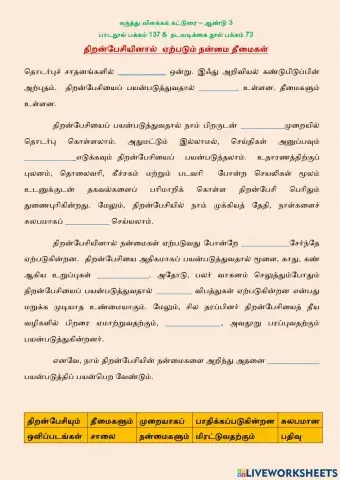 கருத்து விளக்கக் கட்டுரை – ஆண்டு 3
பாடநூல் பக்கம் 137 & நடவடிக்கை நூல் பக்கம் 73
திறன்பேசியினால் ஏற்படும் நன்மை தீமைகள்
தொடர்புச் சாதனங்களில் ____________ ஒன்று. இஃது அறிவியல் கண்டுபிடுப்பின்
அற்புதம். திறன்பேசியைப் பயன்படுத்துவதால் __________ உள்ளன. தீமைகளும்
உள்ளன.
திறன்பேசியைப் பயன்படுத்துவதால் நாம் பிறருடன் ___________முறையில்
தொடர்பு கொள்ளலாம். அதுமட்டும் இல்லாமல், செய்திகள் அனுப்பவும்
_____________எடுக்கவும் திறன்பேசியைப் பயன்படுத்தலாம். உதாரணத்திற்குப்
புலனம், தொலைவரி, கீச்சகம் மற்றும் படவரி போன்ற செயலிகள் மூலம்
உடனுக்குடன் தகவல்களைப் பரிமாறிக் கொள்ள திறன்பேசி பெரிதும்
துணைபுரிகின்றது. மேலும், திறன்பேசியில் நாம் முக்கியத் தேதி, நாள்களைச்
சுலபமாகப் ___________ செய்யலாம்.
திறன்பேசியினால் நன்மைகள் ஏற்படுவது போன்றே ____________சேர்ந்தே
ஏற்படுகின்றன. திறன்பேசியை அதிகமாகப் பயன்படுத்துவதால் மூளை, காது, கண்
ஆகிய உறுப்புகள் _____________, அதோடு, பலர் வாகனம் செலுத்தும்போதும்
திறன்பேசியைப் பயன்படுத்துவதால் _________ விபத்துகள் ஏற்படுகின்றன என்பது
மறுக்க முடியாத உண்மையாகும். மேலும், சில தரப்பினர் திறன்பேசியைத் தீய
வழிகளில் பிறரை ஏமாற்றுவதற்கும், ______________, அவதூறு பரப்புவதற்கும்
பயன்படுத்துகின்றனர்.
எனவே, நாம் திறன்பேசியின் நன்மைகளை அறிந்து அதனை _____________
பயன்படுத்திப் பயன்பெற வேண்டும்.
திறன்பேசியும் தீமைகளும் முறையாகப் பாதிக்கப்படுகின்றன சுலபமான
ஒளிப்படங்கள் சாலை நன்மைகளும் மிரட்டுவதற்கும் பதிவு
LIVEWORKSHEETS